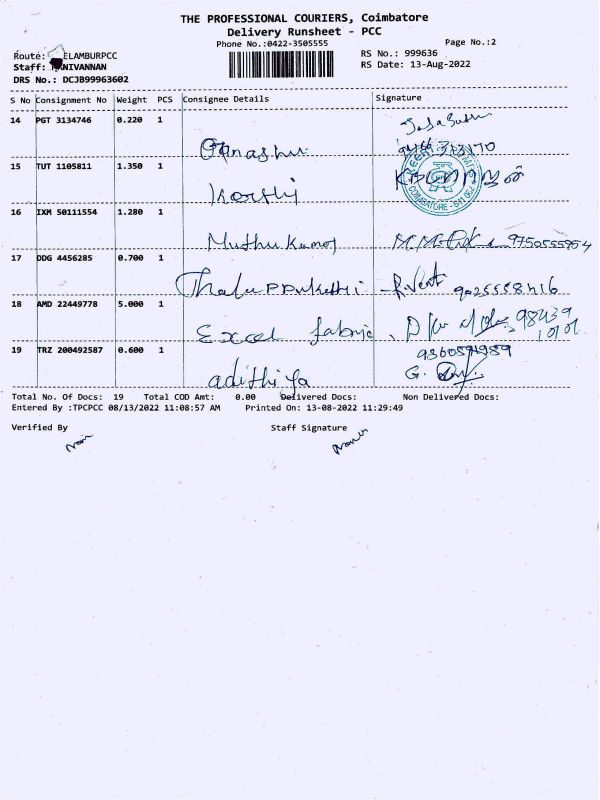 THE PROFESSIONAL COURIERS, Coimbatore
Delivery Runsheet - PCC
Phone No.:0422-3505555
Page No.:2
Route: ELAMBURPCC
RS No.: 999636
Staff: NIVANNAN
RS Date: 13-Aug-2022
DRS No.: DCJB99963602
S No Consignment No Weight PCS Consignee Details Signature
14 PGT 3134746 0.220 1
15 TUT 1105811 1.350 1
COIMBATORE
16 IXM 50111554 1.280 1
Muthu Kumar 9750555954
17 DDG 4456285 0.700 1
R.Vent 9025558416
18 AMD 22449778 5.000 1
Excel fabric 98439
19 TRZ 200492587 0.600 1
adithiya G.
Total No. Of Docs: 19 Total COD Amt: 0.00 Delivered Docs: Non Delivered Docs:
Entered By :TPCPCC 08/13/2022 11:08:57 AM Printed On: 13-08-2022 11:29:49
Verified By Staff Signature